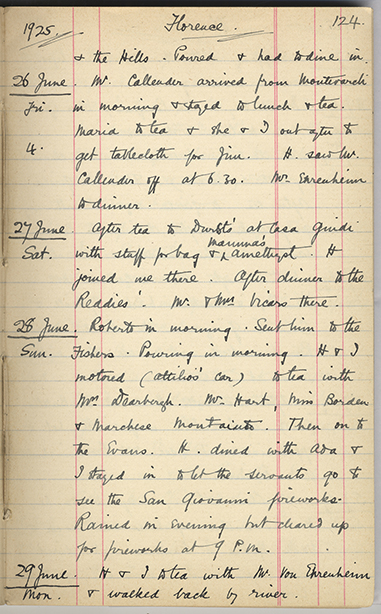 1925. Florence. 124.
& the Hills. Poured & had to dine in.
26 June. Mr. Callender arrived from Montevarchi
Fri. in morning & stayed to lunch & tea.
Maria to tea & she & I out after to
4. get tablecloth for Jim. H. saw Mr.
Callender off at 6.30. Mr. Ehrenheim
to dinner.
27 June. After tea to at Casa Guidi
Mamma's
Sat. with stuff for bag & amethyst. H
joined me there. After dinner to the
Readies. Mr. & Mrs Vicars there.
28 June. Roberto in morning. Sent him to the
Sun. Fishers. Pouring in morning. H & I
motored (Attilio's car) to tea with
Mrs Dearbergh. Mr. Hart, Miss Borden
& Marchese Then on to
the Evans. H. dined with Ada &
I stayed in to let the servants go to
see the San Giovanni fireworks.
Rained in Evening but cleared up
for fireworks at 9 P.M.
29 June. H & I to tea with Mr. Von Ehrenheim
Mon. & walked back by river.